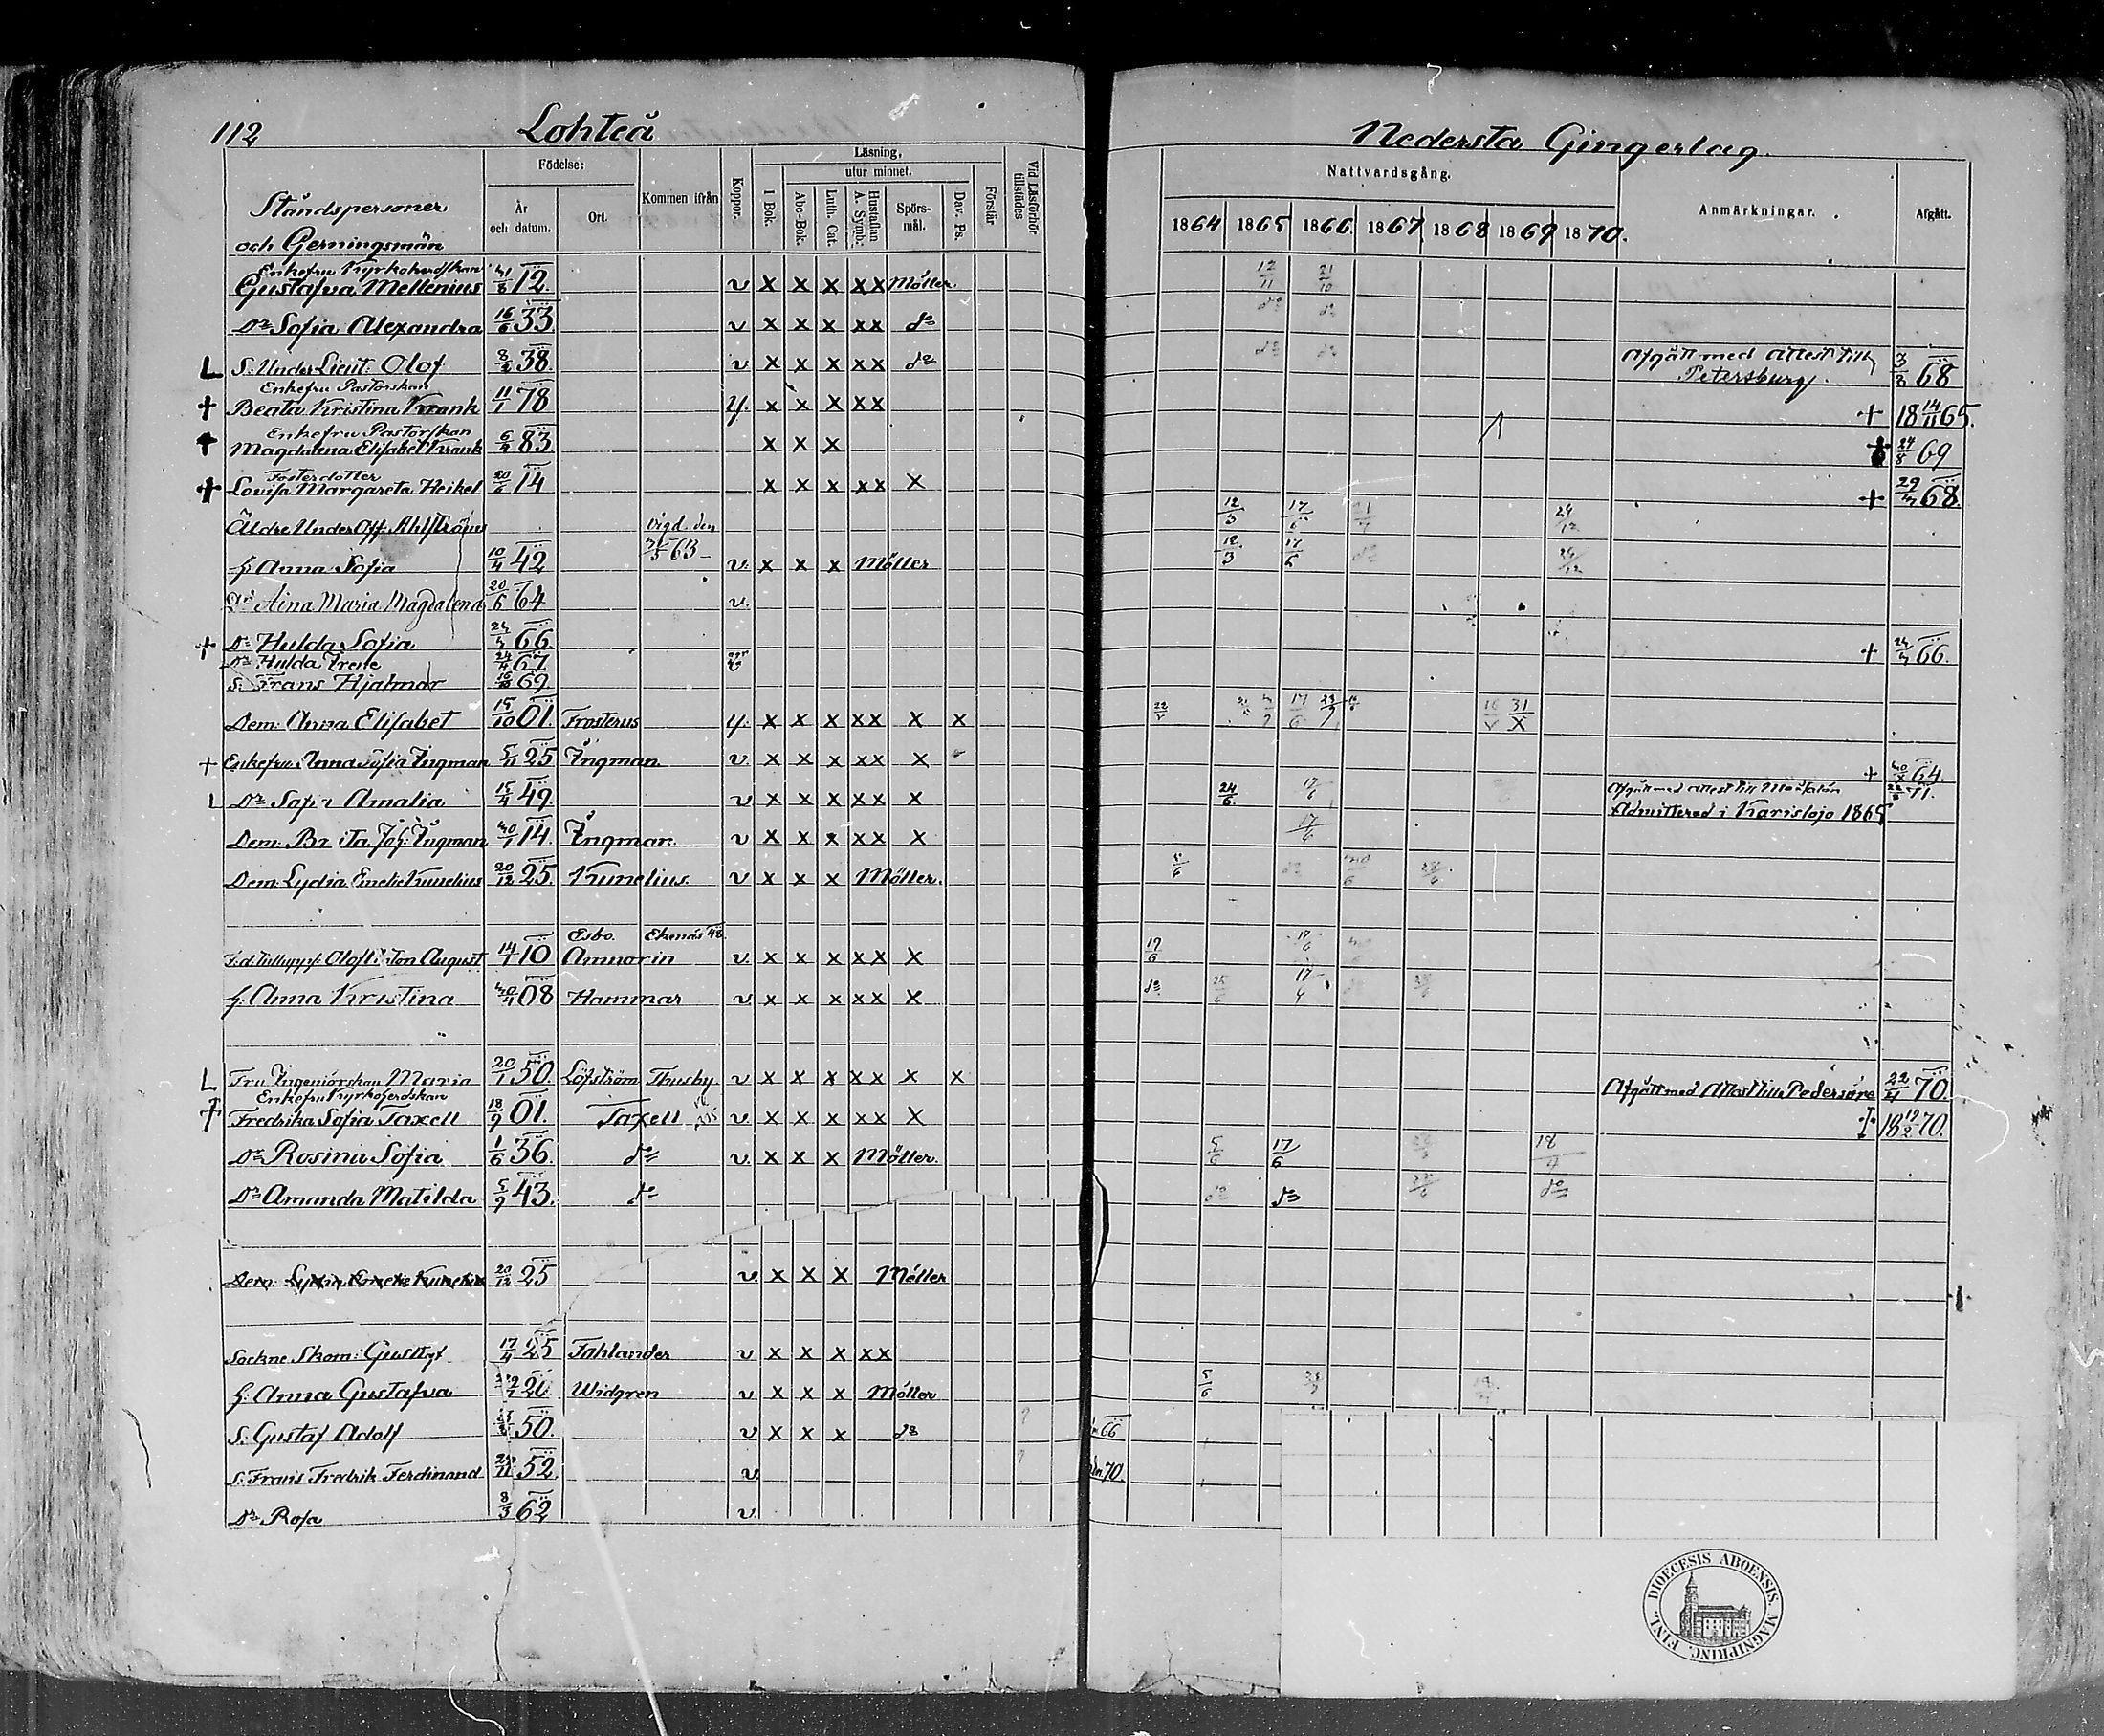 112 Lohteå Nedersta Gingerlag.
Födelse: Läsning, Nattvardsgång.
utur minnet.
Ståndspersoner och Gerningsmän År och datum. Ort. Kommen ifrån Koppor. I Bok. Abc-Bok. Luth. Cat. Hustaflan A. Symb. Spörs-mål. Dav. Ps. Förstår Vid Läsförhör tillstädes 1864 1865 1866 1867 1868 1869 1870. Anmärkningar. Afgått.
Enkefru Kyrkoherdskan
Gustafva Mellenius 12. v x x x xx Möller. 12/11 21/10
Dr Sofia Alexandra 16/6 33 v x x x xx do do do
L S. Under Lieut. Olof 8/2 38. v x x x xx do do do Afgått med Attest till Petersburg. 3/3 68
Enkefru Pastorskan
+ Beata Kristina Krank 11/1 78 y. x x x xx + 18 14/11 65.
Enkefru Pastorskan
+ Magdalena Elisabet Krank 83. x x x + 24/8 69
Fosterdotter
+ Lovisa Margareta Heikel 20/6 14 x x x xx x + 68.
Äldre Under Off. Ahlström vigd den 63 12/3 17/6 24/12
h. Anna Sofia 10/4 42 v. x x x Möller 12/3 17/6 24/12
Dr Aina Maria Magdalena 20/6 64 v.
+ Dr Hulda Sofia 66. + 66.
Dr Hulda Irene 67
S. Frans Hjalmar 69
Dem: Anna Elisabet 15/10 01. Frosterus y. x x x xx x x 22/V 17/6 16/V 31/X
+ Enkefru Anna Sofia Ingman 25 Ingman v x x x xx x + 64.
Dr Sofia Amalia 15/4 49. v x x x xx x 24/6. 17/6 Afgått med attest till 71.
Admitterad i Karislojo 1865
Dem: Brita Joh: Ingman 14. Ingman v x x x xx x 17/6
Dem: Lydia Emelie Kunelius 20/12 25. Kunelius. v x x x Möller. 5/6 do
Esbo. Ekenäs 48.
August 14/1 10 Amnorin v. x x x xx x 17/6 17/6
h. Anna Kristina 08 Hammar v x x x xx x do 17/6
L Fru Ingeniörskan Maria 20/1 50. Löfström Thusby v x x x xx x x Afgått med Attest till Pedersöre 22/4 70.
Enkefru Kyrkoherdskan
+ Fredrika Sofia Taxell 18/9 01. Taxell v x x x xx x + 18 70.
Dr Rosina Sofia 1/6 36. do v. x x x Möller. 5/6 17/6 18/4
Dr Amanda Matilda 5/9 43. do do do do
Dem: Lydia Emelie Kunelius 20/12 25 v x x x Möller
Sockne Skom: Gustaf 17/4 25 Fahlander v x x x xx
h. Anna Gustafva 20 Widgren v x x x Möller 5/6
S. Gustaf Adolf 50. v x x x do 66
S. Frans Fredrik Ferdinand 52 v 70.
Dr Rosa 8/3 62 v.
FINL. DIOECESIS ABOENSIS. MAGNIPRINC.